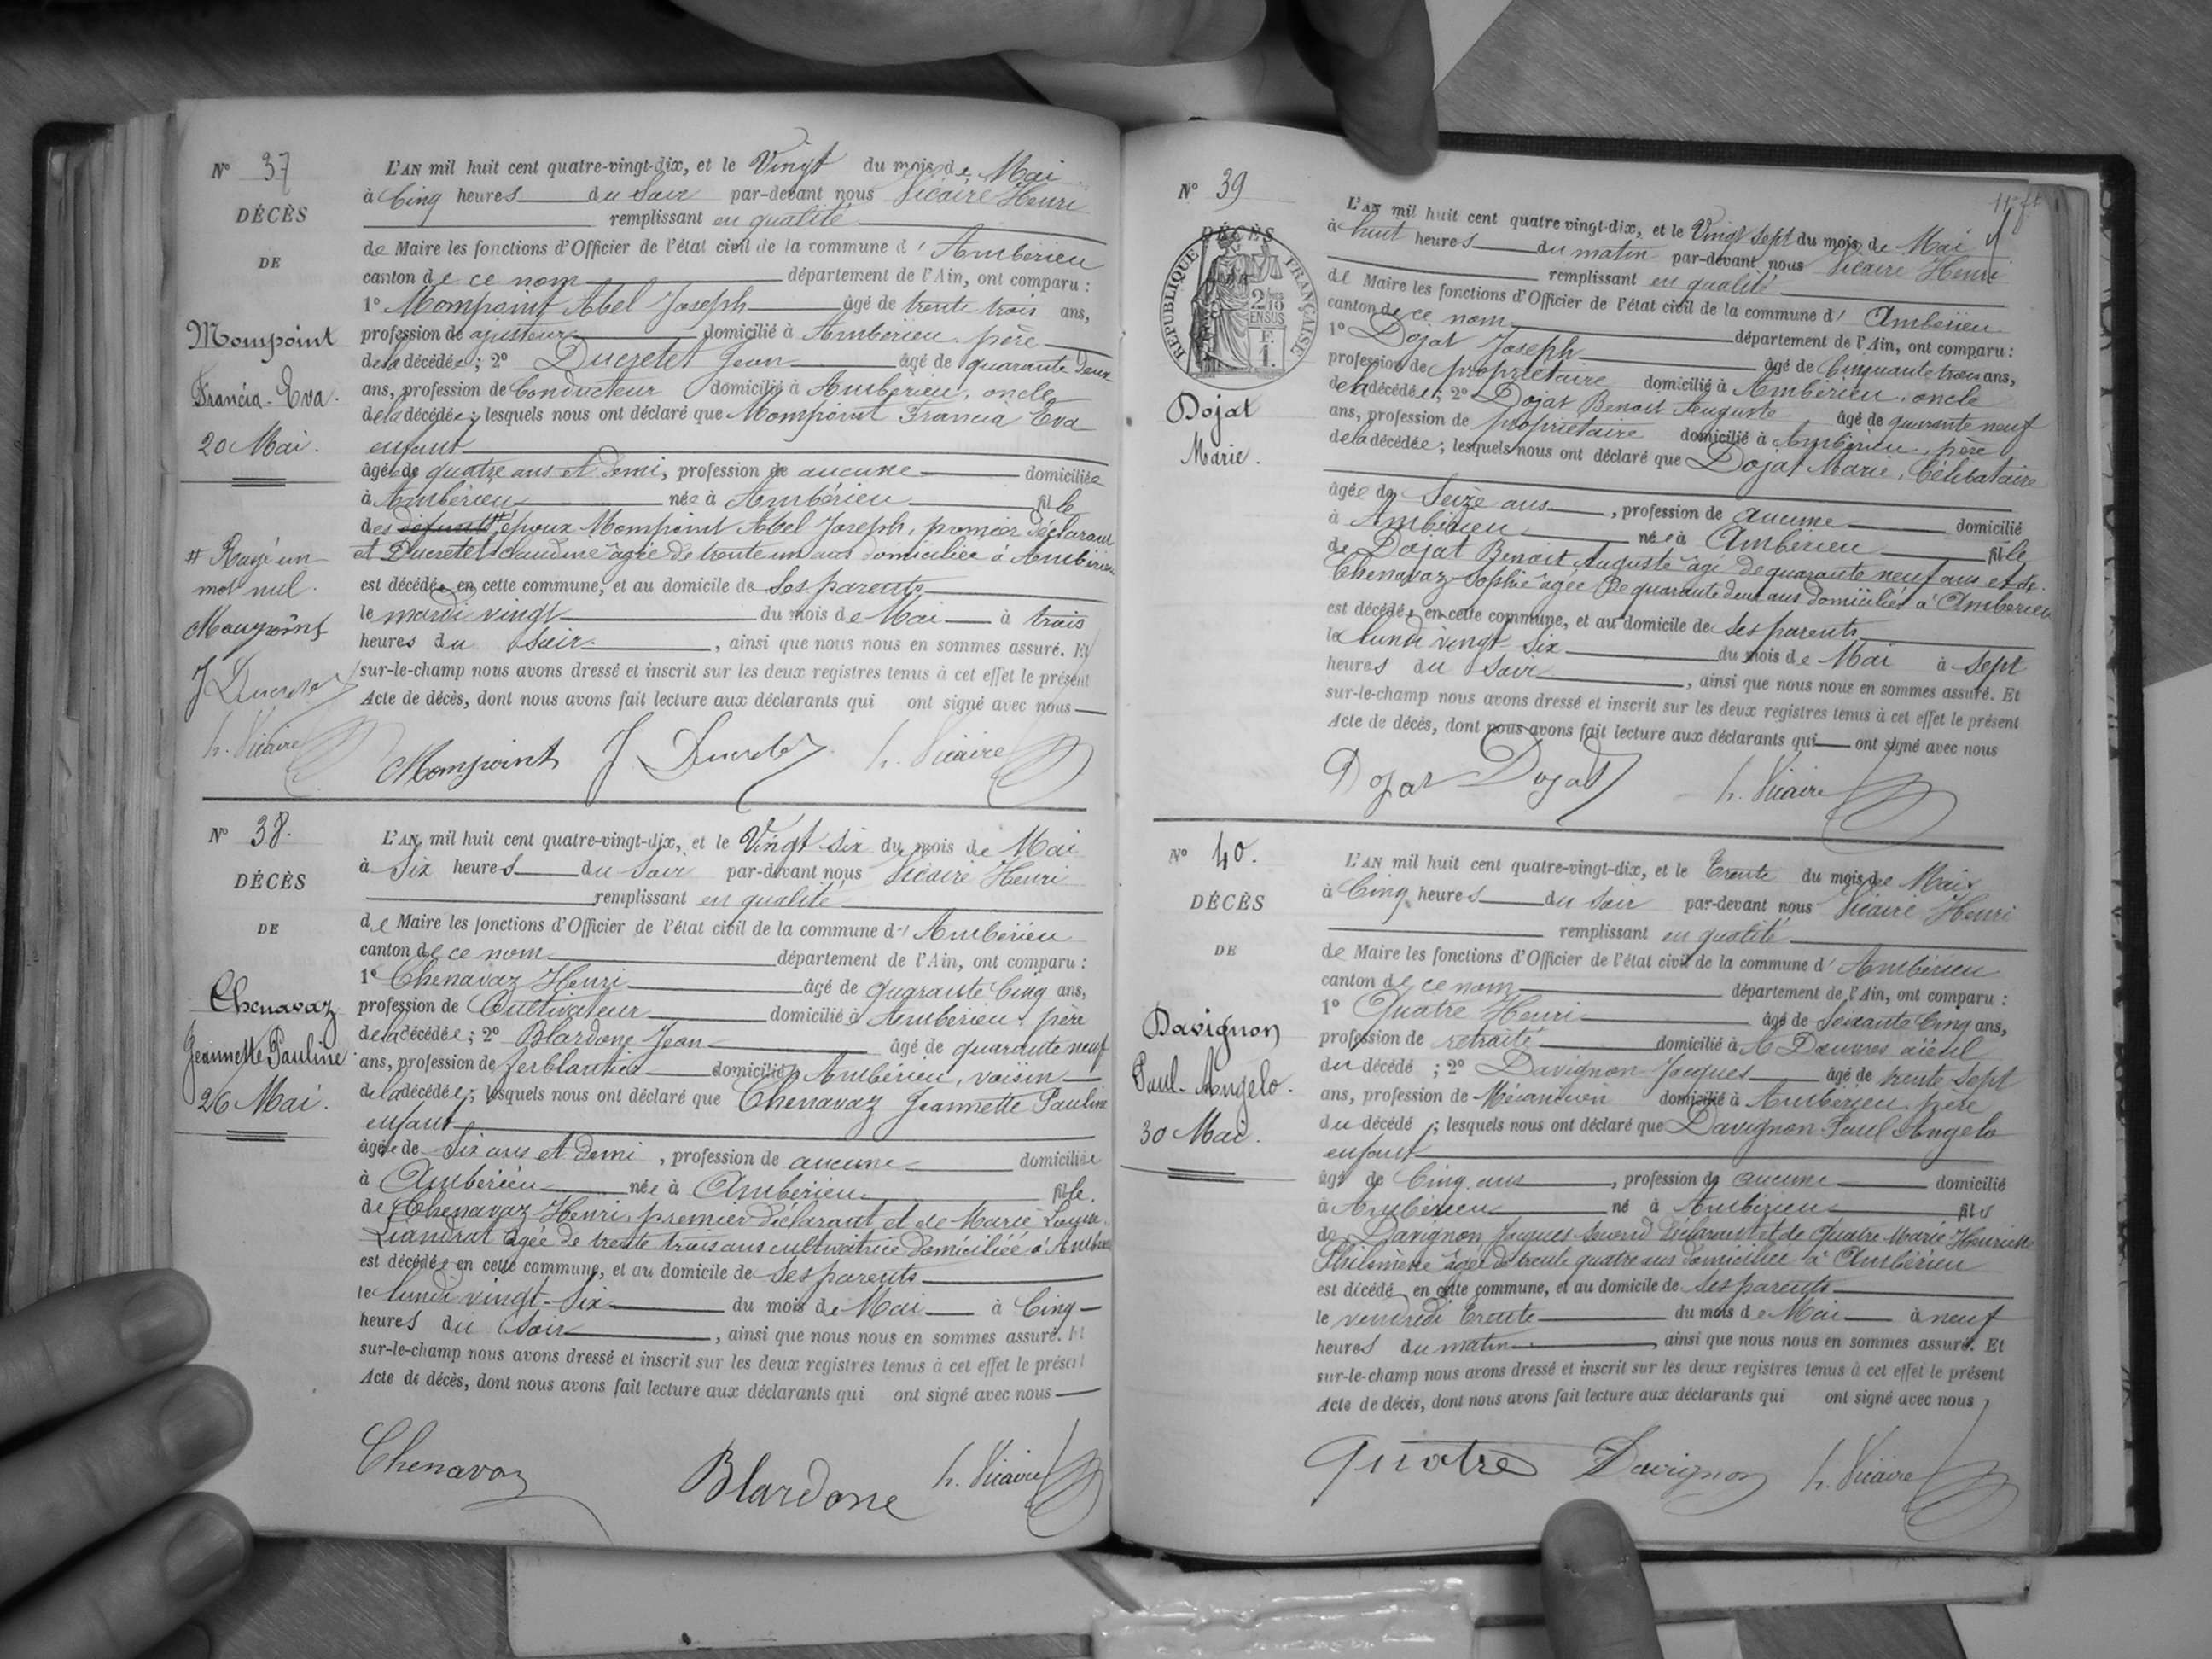 N° 37
DÉCÈS
DE
Mompoint
Francia-Eva.
20 Mai.
# Rayé un
mot nul.
Mompoint
J Ducretet
h. Vicaire
L'AN mil huit cent quatre-vingt-dix, et le Vingt du mois de Mai
à Cinq heures du Soir par-devant nous Vicaire Henri
remplissant en qualité
de Maire les fonctions d'Officier de l'état civil de la commune d' Ambérieu
canton de ce nom département de l'Ain, ont comparu :
1° Mompoint Abel Joseph âgé de trente trois ans,
profession de ajusteur domicilié à Ambérieu, père
de la décédée ; 2° Ducretet Jean âgé de quarante deux
ans, profession de Conducteur domicilié à Ambérieu, oncle
de la décédée ; lesquels nous ont déclaré que Mompoint Francia Eva
enfant
âgée de quatre ans et demi, profession de aucune domiciliée
à Ambérieu née à Ambérieu fille
des défunts # époux Mompoint Abel Joseph, premier déclarant
et Ducretet Claudine âgée de trente un ans domiciliée à Ambérieu
est décédée en cette commune, et au domicile de Ses parents
le mardi vingt du mois de Mai à trois
heures du Soir, ainsi que nous nous en sommes assuré. Et
sur-le-champ nous avons dressé et inscrit sur les deux registres tenus à cet effet le présent
Acte de décès, dont nous avons fait lecture aux déclarants qui ont signé avec nous
Mompoint J Ducretet h. Vicaire
N° 38.
DÉCÈS
DE
Chenavaz
Jeannette Pauline.
26 Mai.
L'AN mil huit cent quatre-vingt-dix, et le Vingt six du mois de Mai
à Six heures du Soir par-devant nous Vicaire Henri
remplissant en qualité
de Maire les fonctions d'Officier de l'état civil de la commune d' Ambérieu
canton de ce nom département de l'Ain, ont comparu :
1° Chenavaz Henri âgé de quarante Cinq ans,
profession de Cultivateur domicilié à Ambérieu, père
de la décédée ; 2° Blardone Jean âgé de quarante neuf
ans, profession de ferblantier domicilié à Ambérieu, voisin
de la décédée ; lesquels nous ont déclaré que Chenavaz Jeannette Pauline
enfant
âgée de Six ans et demi, profession de aucune domiciliée
à Ambérieu née à Ambérieu fille.
de Chenavaz Henri, premier déclarant et de Marie Louise
Liandrat âgée de trente trois ans cultivatrice domiciliée à Ambérieu
est décédée en cette commune, et au domicile de Ses parents
le lundi vingt-Six du mois de Mai à Cinq
heures du Soir, ainsi que nous nous en sommes assuré. Et
sur-le-champ nous avons dressé et inscrit sur les deux registres tenus à cet effet le présent
Acte de décès, dont nous avons fait lecture aux déclarants qui ont signé avec nous
Chenavaz Blardone h. Vicaire
N° 39
DÉCÈS
RÉPUBLIQUE FRANÇAISE
Dojat
Marie.
L'AN mil huit cent quatre vingt-dix, et le Vingt Sept du mois de Mai
à huit heures du matin par-devant nous Vicaire Henri
remplissant en qualité
de Maire les fonctions d'Officier de l'état civil de la commune d' Ambérieu
canton de ce nom département de l'Ain, ont comparu :
1° Dojat Joseph âgé de Cinquante trois ans,
profession de propriétaire domicilié à Ambérieu, oncle
de la décédée ; 2° Dojat Benoit Auguste âgé de quarante neuf
ans, profession de propriétaire domicilié à Ambérieu, père
de la décédée ; lesquels nous ont déclaré que Dojat Marie, Célibataire
âgée de Seize ans, profession de aucune domicilié
à Ambérieu née à Ambérieu fille
de Dojat Benoit Auguste âgé de quarante neuf ans et de
Chenavaz Sophie âgée de quarante deux ans domiciliés à Ambérieu
est décédée en cette commune, et au domicile de Ses parents
le lundi vingt-Six du mois de Mai à Sept
heures du Soir, ainsi que nous nous en sommes assuré. Et
sur-le-champ nous avons dressé et inscrit sur les deux registres tenus à cet effet le présent
Acte de décès, dont nous avons fait lecture aux déclarants qui ont signé avec nous
Dojat Dojat h. Vicaire
N° 40.
DÉCÈS
DE
Davignon
Paul-Angelo.
30 Mai.
L'AN mil huit cent quatre-vingt-dix, et le Trente du mois de Mai
à Cinq heures du Soir par-devant nous Vicaire Henri
remplissant en qualité
de Maire les fonctions d'Officier de l'état civil de la commune d' Ambérieu
canton de ce nom département de l'Ain, ont comparu :
1° Quatre Henri âgé de Soixante Cinq ans,
profession de retraité domicilié à Douvres aïeul
du décédé ; 2° Davignon Jacques âgé de trente Sept
ans, profession de Mécanicien domicilié à Ambérieu, père
du décédé ; lesquels nous ont déclaré que Davignon Paul Angelo
enfant
âgé de Cinq ans, profession de aucune domicilié
à Ambérieu né à Ambérieu fils
de Davignon Jacques second déclarant et de Quatre Marie Henriette
Philomène âgée de trente quatre ans domiciliée à Ambérieu
est décédé en cette commune, et au domicile de Ses parents
le vendredi Trente du mois de Mai à neuf
heures du matin, ainsi que nous nous en sommes assuré. Et
sur-le-champ nous avons dressé et inscrit sur les deux registres tenus à cet effet le présent
Acte de décès, dont nous avons fait lecture aux déclarants qui ont signé avec nous
Quatre Davignon h. Vicaire